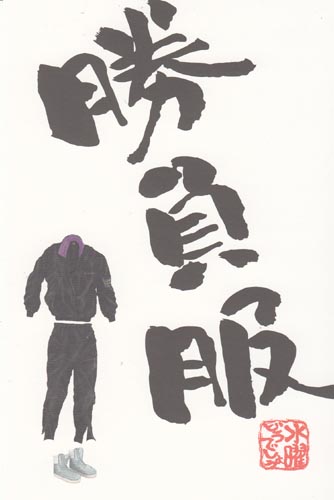 勝負服
水曜
どうでしょう